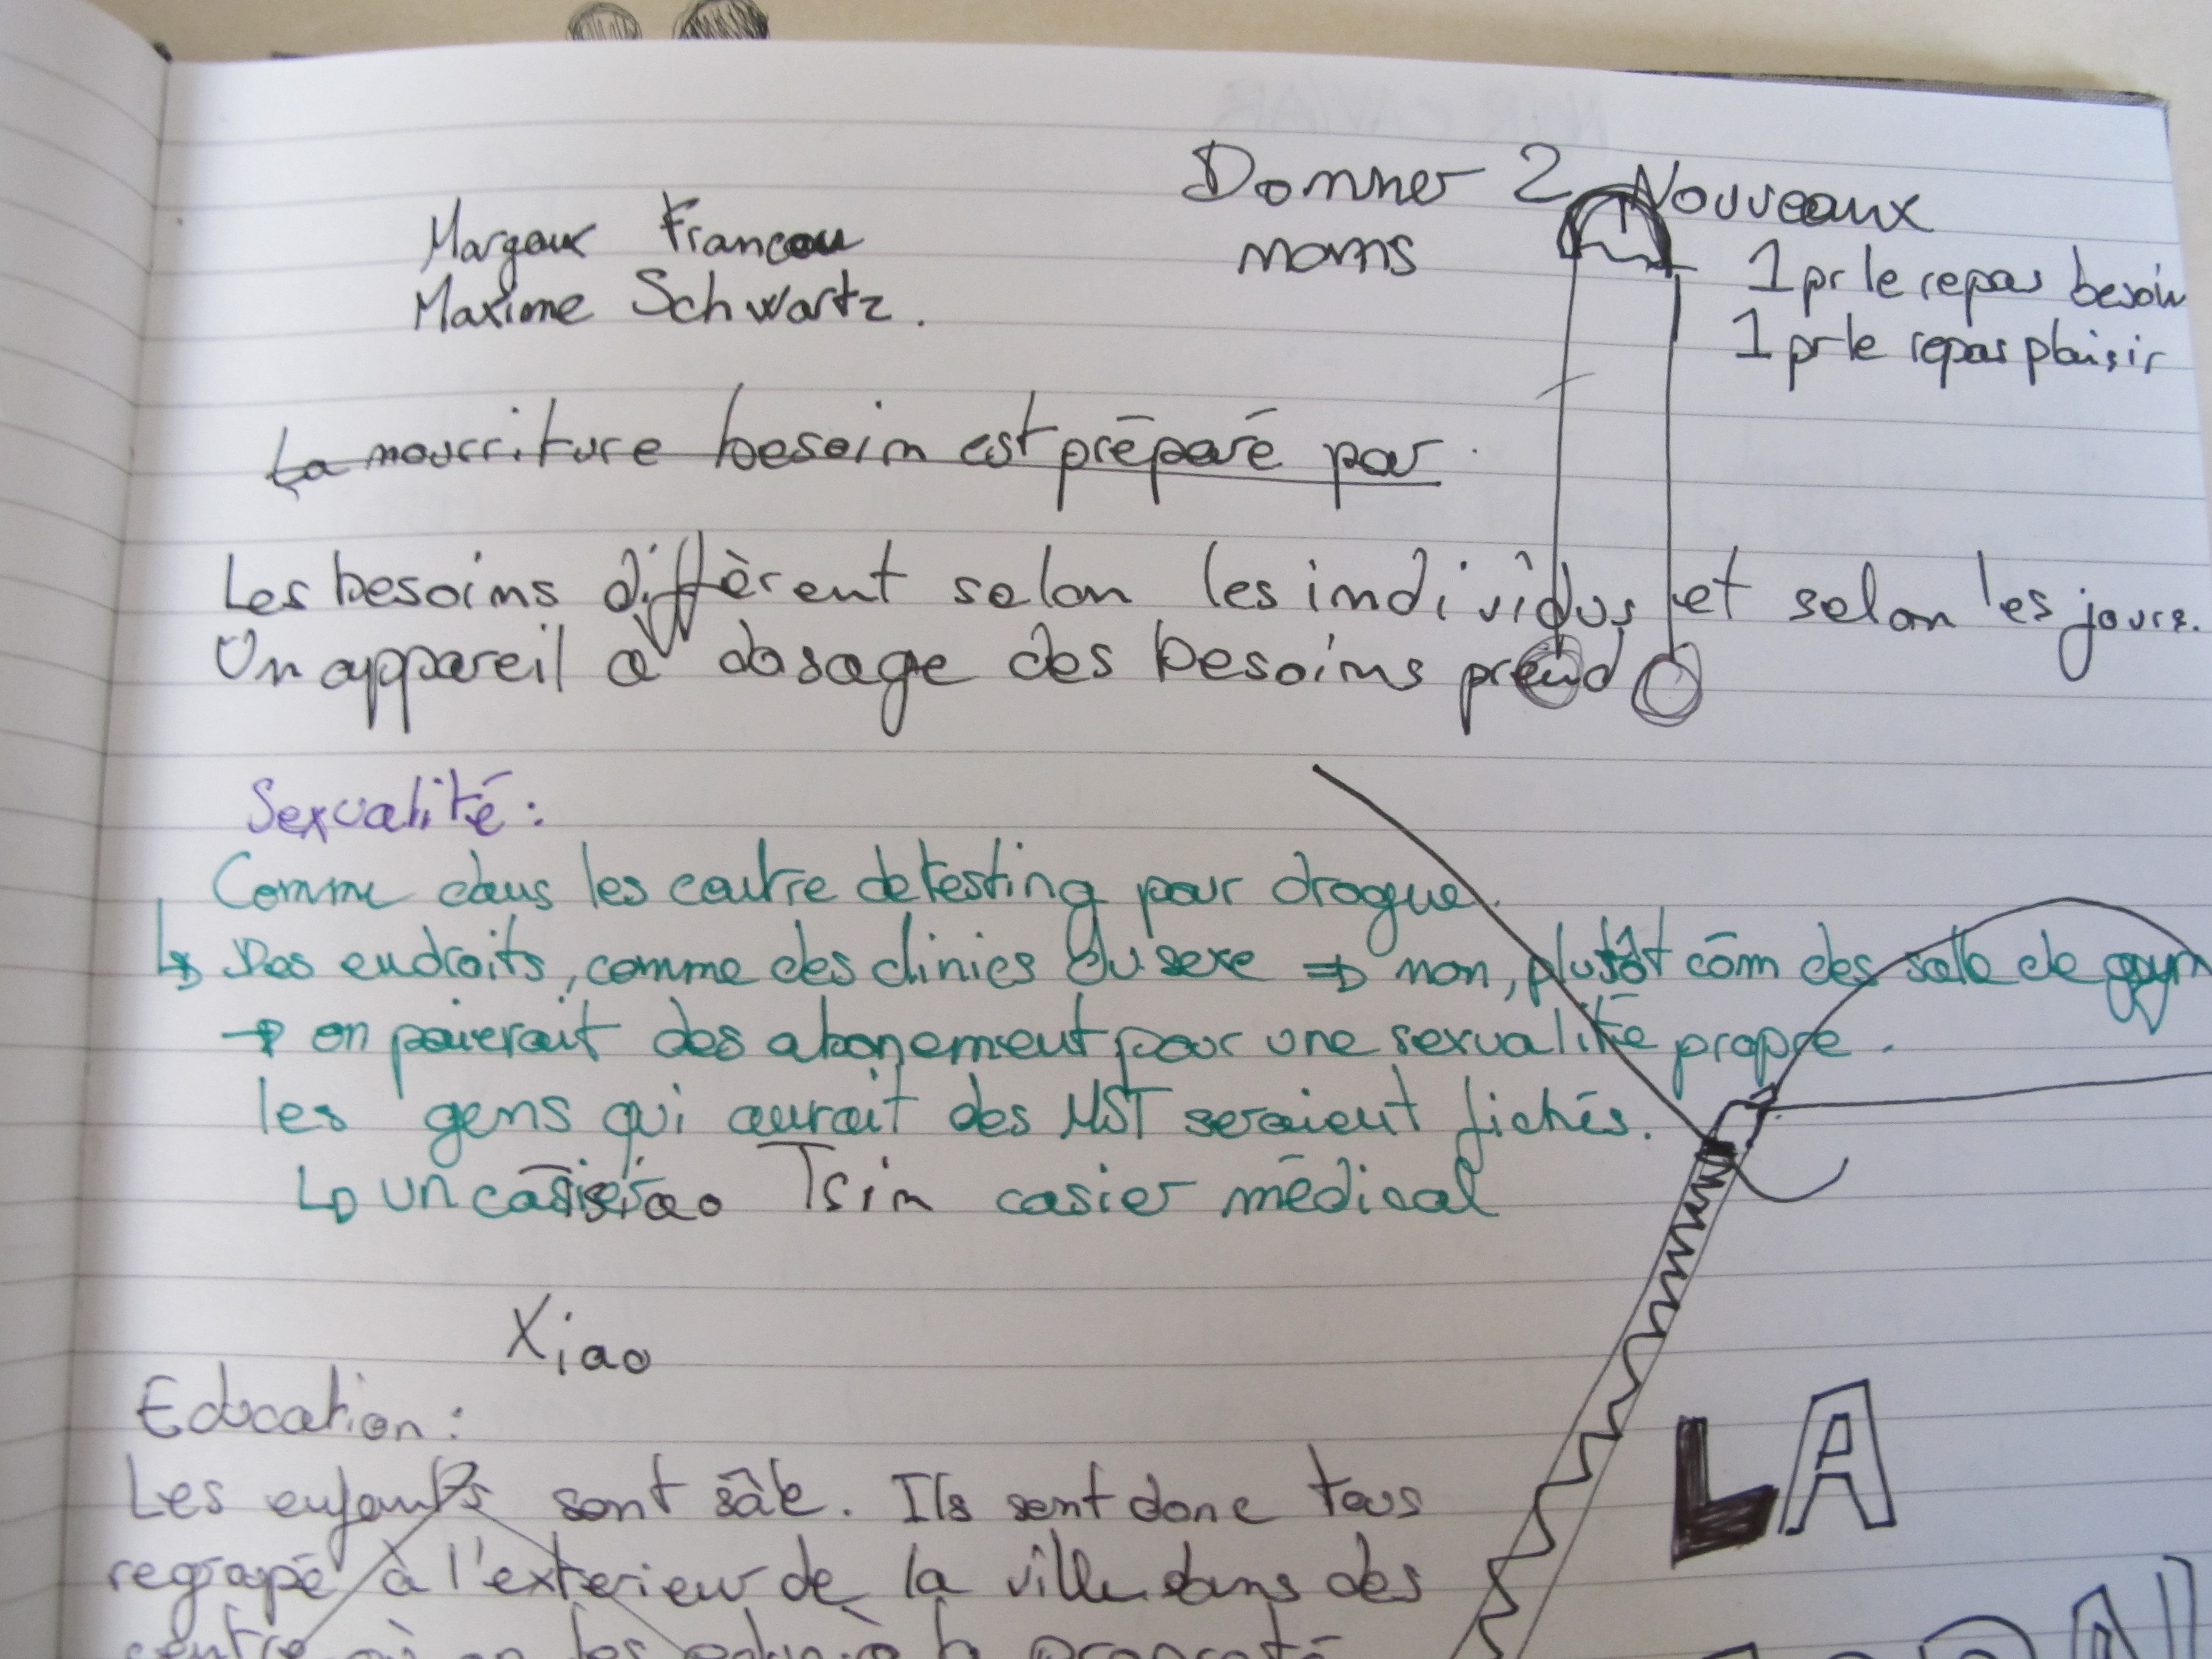 Donner 2 Nouveaux
noms
1 pr le repas besoin
1 pr le repas plaisir
Margaux Francou
Maxime Schwartz.
La nourriture besoin est préparé par
Les besoins diffèrent selon les individus et selon les jours.
Un appareil a dosage des besoins prend
Sexualité :
Comme dans les centre de testing pour drogue.
↳ Des endroits, comme des clinics du sexe ⇒ non, plutôt côm des salle de gym
→ on paierait des abonement pour une sexualité propre.
les gens qui aurait des MST seraient fichés.
↳ un casier Tsiao Tsin casier médical
Xiao
Education :
Les enfants sont sâle. Ils sont donc tous
regroupé à l'exterieur de la ville dans des
centre où on les
LA